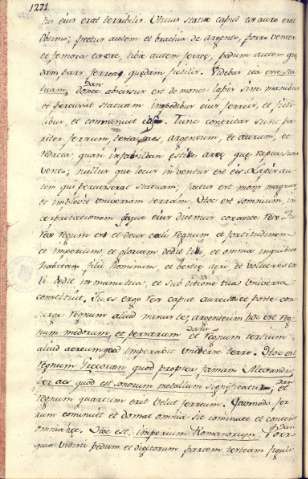 1221.
tus eius erat terribilis. Huius statuæ caput ex auro erat
optimo; pectus autem et brachia de argento, porro venter
et femora ex ære, tibiæ autem ferreæ, pedum autem quæ
dam pars ferrea, quædam fictilis. Videbas ita
donec abscissus est de monte lapis sine manibus
et percussit statuam in pedibus eius ferreis, et fictili
bus, et comminuit eos. Tunc contrita sunt pa
riter ferrum, testa, æs, argentum, et aurum, et
redacta quasi in favillam æstivæ areæ, quæ rapta sunt
vento; nullus que locus inventus est eis. Lapis au
tem qui percusserat statuam, factus est mons magnus
et implevit universam terram. Hoc est somnium, in
terpretationem quoque eius dicemus coram te. Tu
rex regum es: et Deus cœli regnum et fortitudinem
et imperium, et gloriam dedit tibi, et omnia in quibus
habitant filii hominum, et bestiæ agri de volucres
dedit in manu tua, et sub ditione tua universa
constituit. Tu es ergo caput aureum: et post te con
surget regnum aliud minus te, argenteum hoc est reg
num medorum, et persarum et regnum tertium
aliud æreum quod imperabit universæ terræ. Hoc est
regnum Græcorum quod propter famam Alexandri
quod est sonorum metallum significatur, et
regnum quartum erit velut ferrum. Quomodo fer
rum comminuit et domat omnia sic comminuet et conteret
omnia hæc. Hoc est imperium Romanorum. Porro
quia vidisti pedum et digitorum partem testeam figuli